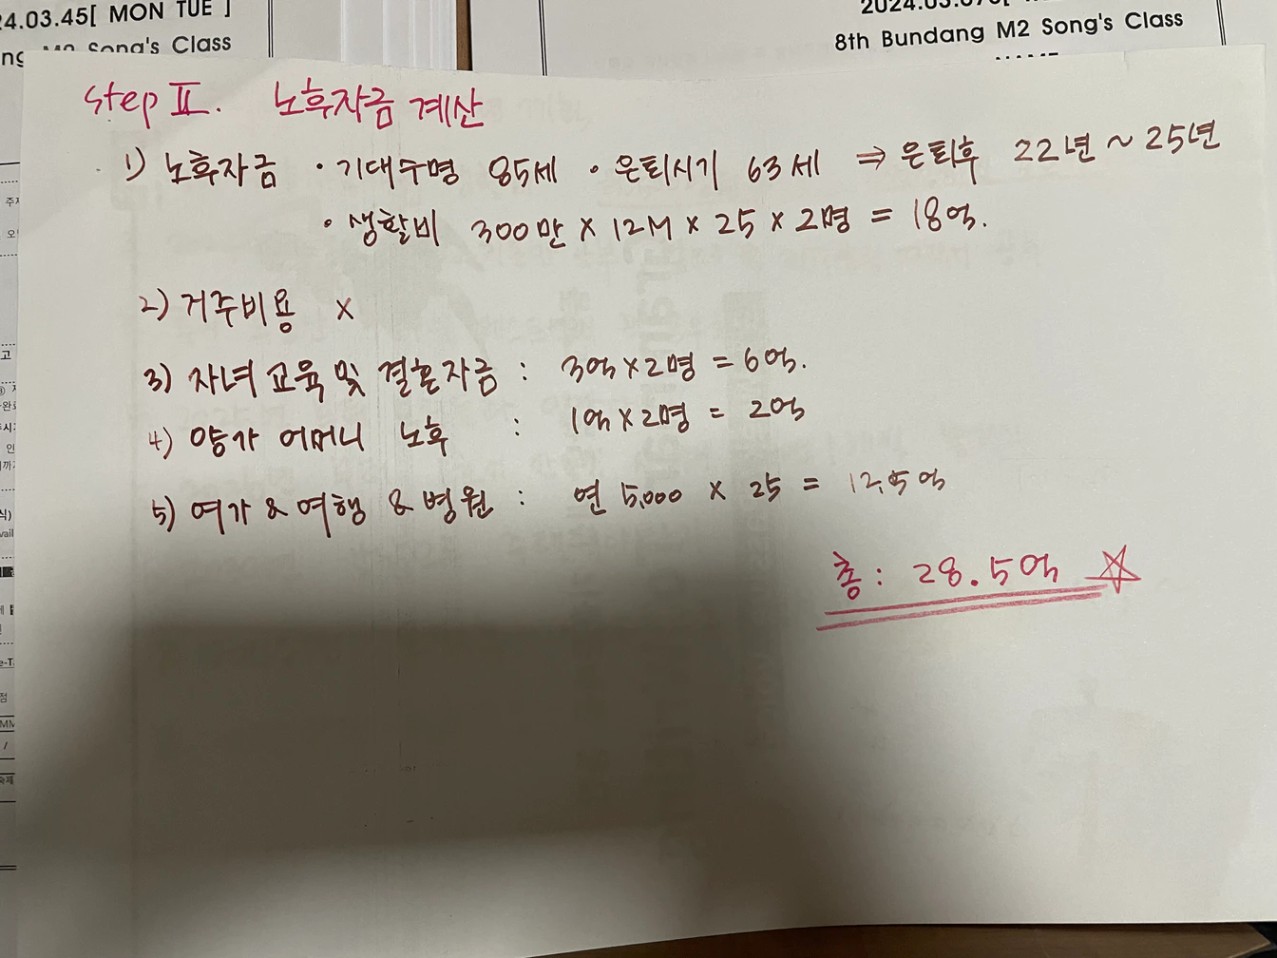 24.03.45[ MON TUE ]
Song's Class
8th Bundang M2 Song's Class
Step Ⅱ. 노후자금 계산
1) 노후자금 · 기대수명 85세 · 은퇴시기 63세 ⇒ 은퇴후 22년 ~ 25년
· 생활비 300만 × 12M × 25 × 2명 = 18억.
2) 거주비용 ×
3) 자녀 교육 및 결혼자금 : 3억×2명 = 6억.
4) 양가 어머니 노후 : 1억×2명 = 2억
5) 여가 & 여행 & 병원 : 연 5,000 × 25 = 12.5억
총 : 28.5억 ☆